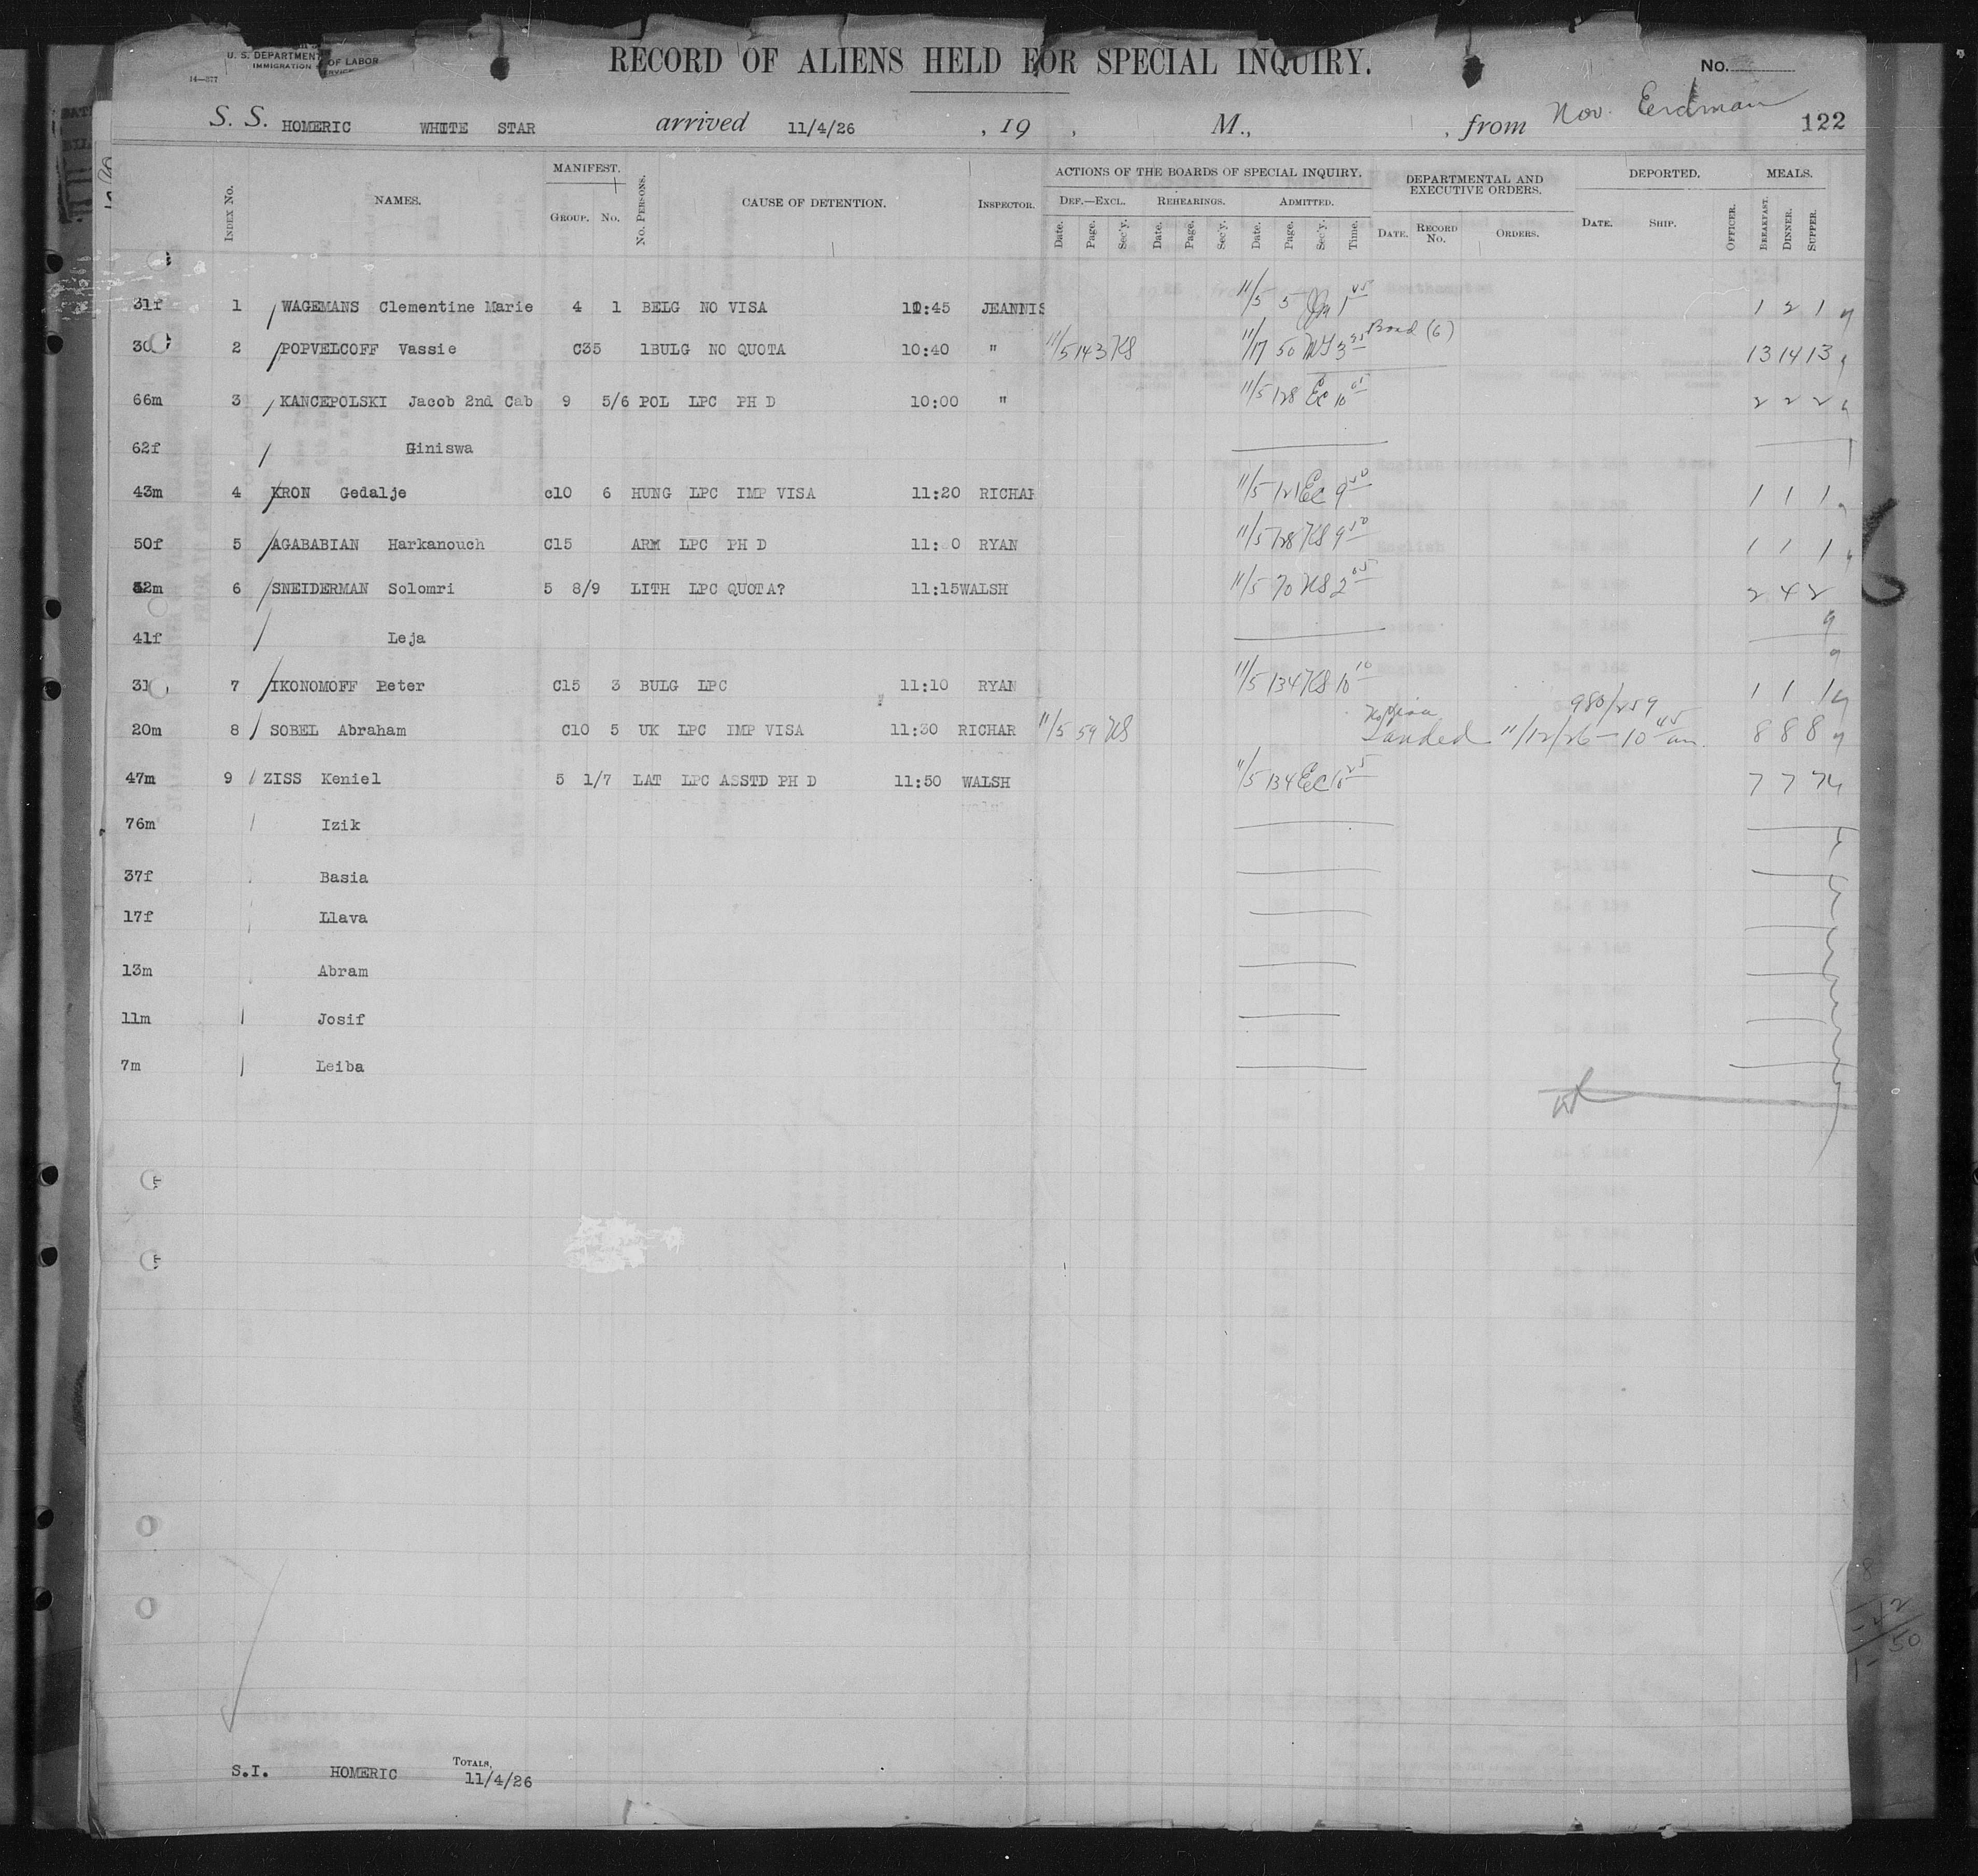 U. S. DEPARTMENT OF LABOR
IMMIGRATION SERVICE
14—377
RECORD OF ALIENS HELD FOR SPECIAL INQUIRY.
No.
S. S. HOMERIC WHITE STAR arrived 11/4/26 , 19 , M., , from Nov. Erdman 122
INDEX No. NAMES. MANIFEST. GROUP. No. No. PERSONS. CAUSE OF DETENTION. INSPECTOR. ACTIONS OF THE BOARDS OF SPECIAL INQUIRY. DEPARTMENTAL AND EXECUTIVE ORDERS. DEPORTED. MEALS.
DEF.—EXCL. REHEARINGS. ADMITTED.
Date. Page. Sec'y. Date. Page. Sec'y. Date. Page. Sec'y. Time. DATE. RECORD No. ORDERS. DATE. SHIP. OFFICER. BREAKFAST. DINNER. SUPPER.
31f 1 WAGEMANS Clementine Marie 4 1 BELG NO VISA 10:45 JEANNIS 11/5 5 1 45 1 2 1
30 2 POPVELCOFF Vassie C35 1BULG NO QUOTA 10:40 " 11/5 143 KS 11/17 50 3 35 Bond (6) 13 14 13
66m 3 KANCEPOLSKI Jacob 2nd Cab 9 5/6 POL LPC PH D 10:00 " 11/5 128 EC 10 05 2 2 2
62f Giniswa
43m 4 KRON Gedalje c10 6 HUNG LPC IMP VISA 11:20 RICHAR 11/5 121 EC 9 40 1 1 1
50f 5 AGABABIAN Harkanouch C15 ARM LPC PH D 11: 0 RYAN 11/5 128 KS 9 50 1 1 1
52m 6 SNEIDERMAN Solomri 5 8/9 LITH LPC QUOTA? 11:15WALSH 11/5 70 KS 2 05 2 4 2
41f Leja
31 7 IKONOMOFF Peter C15 3 BULG LPC 11:10 RYAN 11/5 134 KS 10 10 1 1 1
980/259
20m 8 SOBEL Abraham C10 5 UK LPC IMP VISA 11:30 RICHAR 11/5 59 KS Landed 11/12/26 – 10 45 am. 8 8 8
47m 9 ZISS Keniel 5 1/7 LAT LPC ASSTD PH D 11:50 WALSH 11/5 134 EC 10 25 7 7 7
76m Izik
37f Basia
17f Llava
13m Abram
11m Josif
7m Leiba
TOTALS,
S.I. HOMERIC 11/4/26